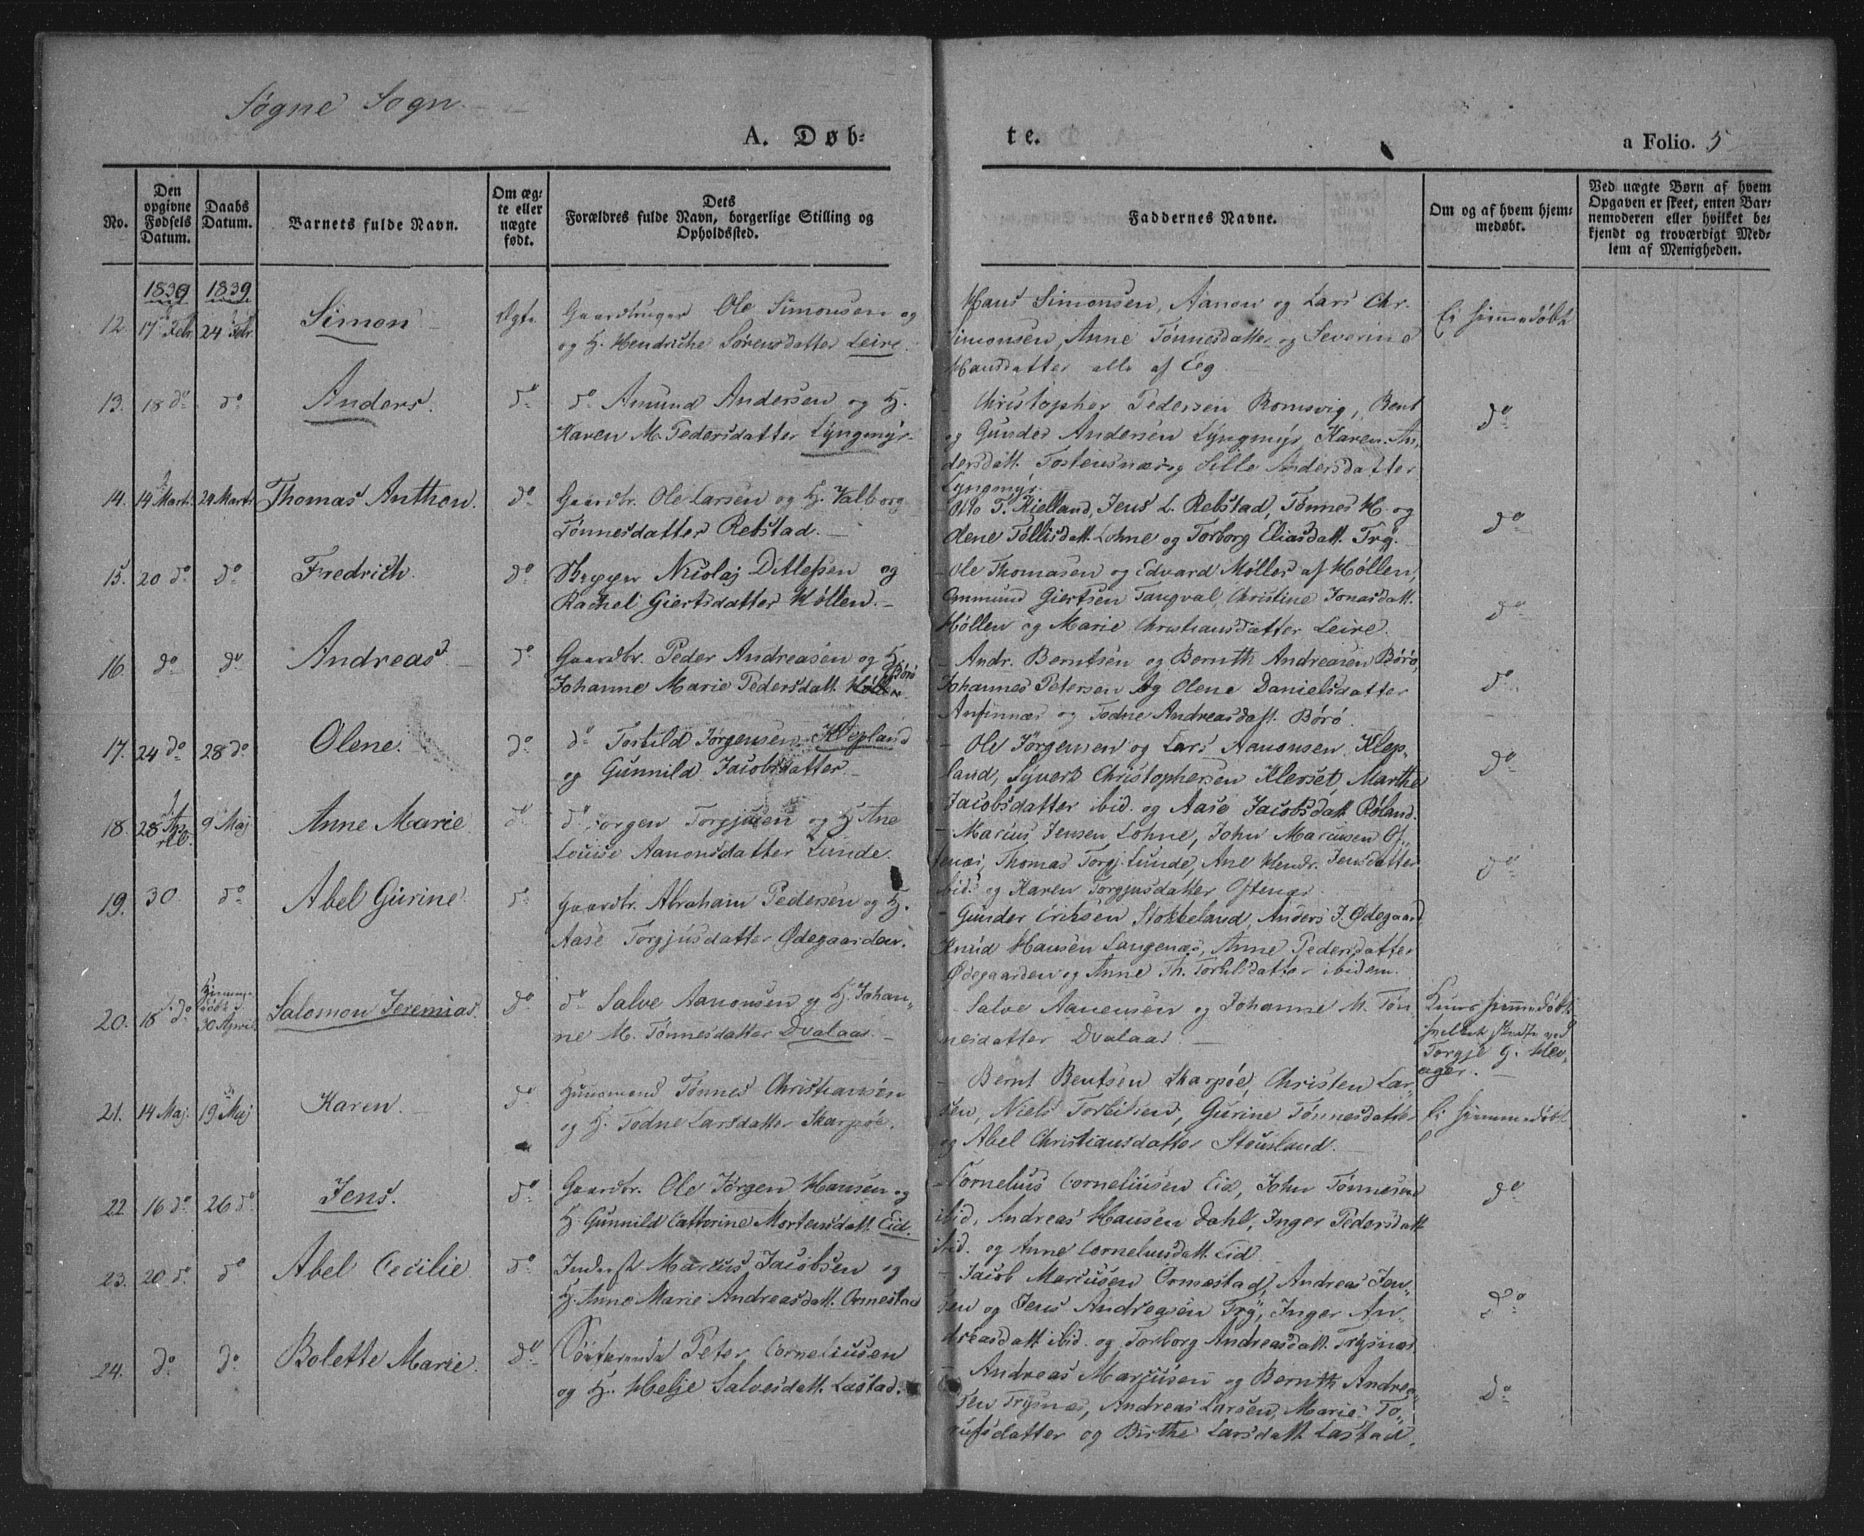 Søgne Sogn
A. Døb-
te.
a Folio. 5
No.
Den opgivne Fødsels Datum.
Daabs Datum.
Barnets fulde Navn.
Om ægte eller nægte født.
Dets Forældres fulde Navn, borgerlige Stilling og Opholdssted.
Faddernes Navne.
Om og af hvem hjemmedøbt.
Ved nægte Børn af hvem Opgaven er skeet, enten Barnemoderen eller hvilket bekjendt og troværdigt Medlem af Menigheden.
1839 1839
12. 17 Febr. 24 Febr. Simon Ægte Gaardbruger Ole Simonsen og
og H. Hendriche Sørensdatter Leire.
Hans Simonsen, Aanon og Lars Chr.
Simonsen, Anne Tønnesdatter og Severine
Hansdatter alle af Eeg
Ei hjemmedøbt
13. 18 do do Anders. do do Amund Andersen og H.
Karen M. Pedersdatter Lyngmyr
- Christopher Pedersen Romsvig, Bent
og Gunder Andersen Lyngmyr Karen An-
dersdatt. Tostensnæs og Sille Andersdatter
Lyngmyr.
do
14. 14 Mart. 24 Mart. Thomas Anthon. do Gaardbr. Ole Larsen og H. Valborg
Tønnesdatter Rebstad.
Otto T. Kielland, Jens L. Rebstad, Tønnes H. og
Olene Tøllisdatt. Lohne og Torborg Eliasdatt. Try.
do
15. 20 do do Fredrich. do Nicolaj Ditlefsen og
Rachel Giertsdatter Høllen.
- Ole Thomasen og Edvard Møller af Høllen,
Ommund Giertsen Tangval, Christine Jonasdatt.
Høllen og Marie Christiansdatter Leire.
do
16. do do Andreas do Gaardbr. Peder Andreasen og H. Børø
Johanne Marie Pedersdatt. Høllen
- Andr. Berntsen og Bernth Andreasen Børø,
Johannes Petersen og Olene Danielsdatter
og Todne Andreasdatt. Børø.
do
17. 24 do 28 do Olene. do do Torkild Jørgensen Klepland
og Gunnild Jacobsdatter
- Ole Jørgensen og Lars Aanonsen Klep-
land, Syvert Christophersen Kleveset, Marthe
Jacobsdatter ibid. og Aase Jacobsdatt. Røland.
do
18. 28 Apr. 9 Maj Anne Marie do do Jørgen Torgjusen og H. Ane
Louise Aanonsdatter Lunde.
- Marcus Jensen Lohne, John Marcusen Of-
tenæs, Thomas Torgj. Lunde, Ane Hendr. Jensdatter
ibid. og Karen Torgjusdatter Oftenæs
do
19. 30 do Abel Gurine do Gaardbr. Abraham Pedersen og H.
Aase Torgjusdatter Ødegaarden.
- Gunder Eriksen Stokkeland, Anders J. Ødegaard
Knud Hansen Langenæs, Anne Pedersdatter
Ødegaarden og Anne Th. Torkilsdatter ibidem.
20. 18 do 30 April Salomon Jeremias. do do Salve Aanonsen og H. Johan-
ne M. Tønnesdatter Dvalaas.
- Salve Aanensen og Johanne M. Tøn-
nesdatter Dvalaas
Kuns hjemmedøbt
hvilket skedte ved
Torgje G. Høv-
ager.
21. 14 Maj. 19 Maj Karen. do Huusmand Tønnes Christiansen
og H. Todne Larsdatter Skarpøe.
- Bernt Bentsen Skarpøe, Christen Lar-
sen, Niels Torkilsen, Gurine Tønnesdatter
og Abel Christiansdatter Stousland.
Ei hjemmedøbt
22 16 do 26 do Jens. do Gaardbr. Ole Jørgen Hansen og
H. Gunnild Catherine Mortensdatt. Eid.
- Cornelius Corneliusen Eid, John Tønnesen
ibid, Andreas Hansen Dahl, Inger Pedersdatt.
ibid. og Anne Corneliusdatt. Eid
do
23. 20 do do Abel Cecilie do Inderst Marcus Jacobsen og
H. Anne Marie Andreasdatt. Ormestad
- Jacob Marcusen Ormestad, Andreas Jen-
sen og Jens Andreasen Try, Inger An-
dreasdatt. ibid. og Torborg Andreasdatt. Trysnæs
do
24. do do Bolette Marie. do Søefarende Peter Corneliusen
og H. Helje Salvesdatt. Lastad.
- Andreas Marcusen og Bernth Andrea-
sen Trysnæs, Andreas Larsen, Marie To-
rufsdatter og Birthe Larsdatt. Lastad.
do